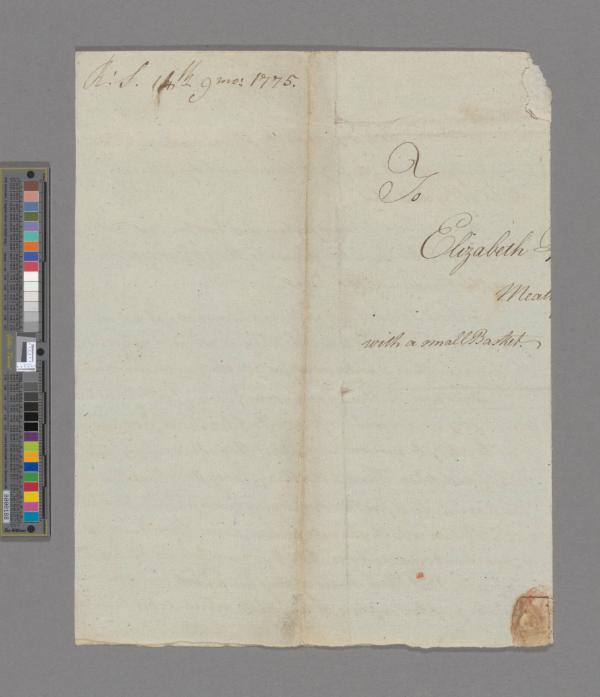 R: S. 14th 9mo: 1775.
To
Elizabeth
Meath
with a small Basket.